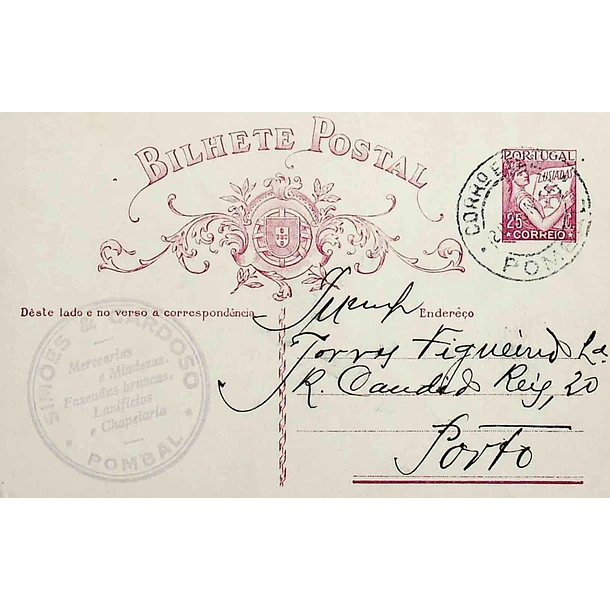 BILHETE POSTAL
PORTUGAL
LUSIADAS
25 C.
CORREIO
CORREIO
POMB
Dêste lado e no verso a correspondência
Endereço
SIMÕES & CARDOSO
Mercearias
e Miudezas.
Fazendas brancas,
Lanifícios
e Chapelaria
POMBAL
Torres Figueired Lª
R. Candid Reis, 20
Porto